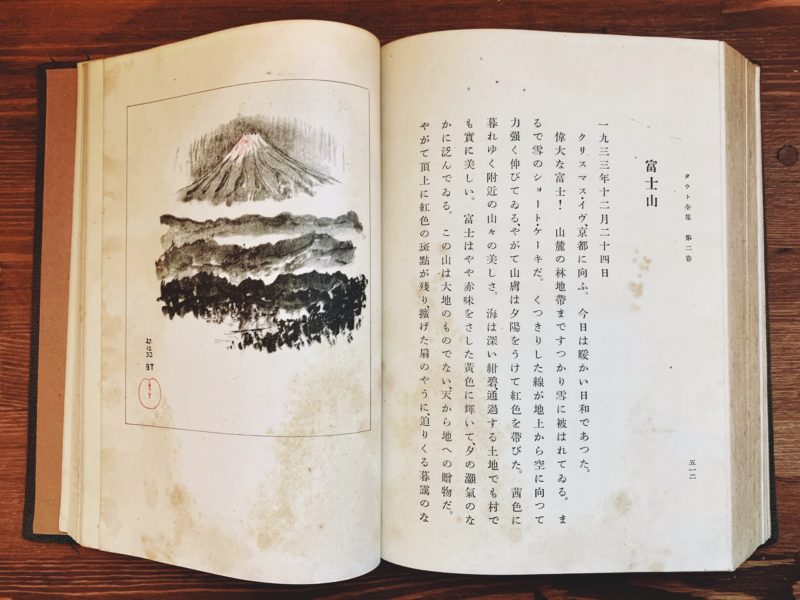 タウト全集 第二卷
五一二
富士山
一九三三年十二月二十四日
クリスマス・イヴ、京都に向ふ。今日は暖かい日和であつた。
偉大な富士! 山麓の林地帶まですつかり雪に被はれてゐる。ま
るで雪のショート・ケーキだ。くつきりした線が地上から空に向つて
力强く伸びてゐる、やがて山膚は夕陽をうけて紅色を帶びた。茜色に
暮れゆく附近の山々の美しさ。海は深い紺碧、通過する土地でも村で
も實に美しい。富士はやや赤味をさした黃色に輝いて、夕の灝氣のな
かに泛んでゐる。この山は大地のものでない、天から地への贈物だ。
やがて頂上に紅色の斑點が殘り、擴げた扇のやうに、迫りくる暮靄のな
12
33
BT